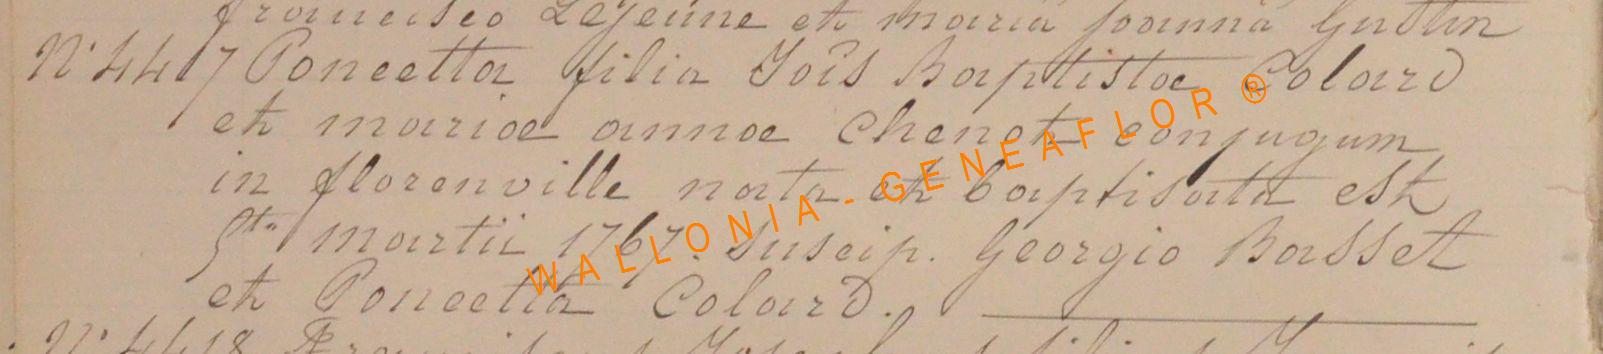 francisco Lejeune et maria joanna Gustin
N° 4417 Poncetta filia Jois Baptistae Colard
et mariae annae Chenot conjugum
in florenville nata et baptisata est
5ta martii 1767. Suscip. Georgio Basset
et Poncetta Colard.
WALLONIA-GENEAFLOR®
N° 4418